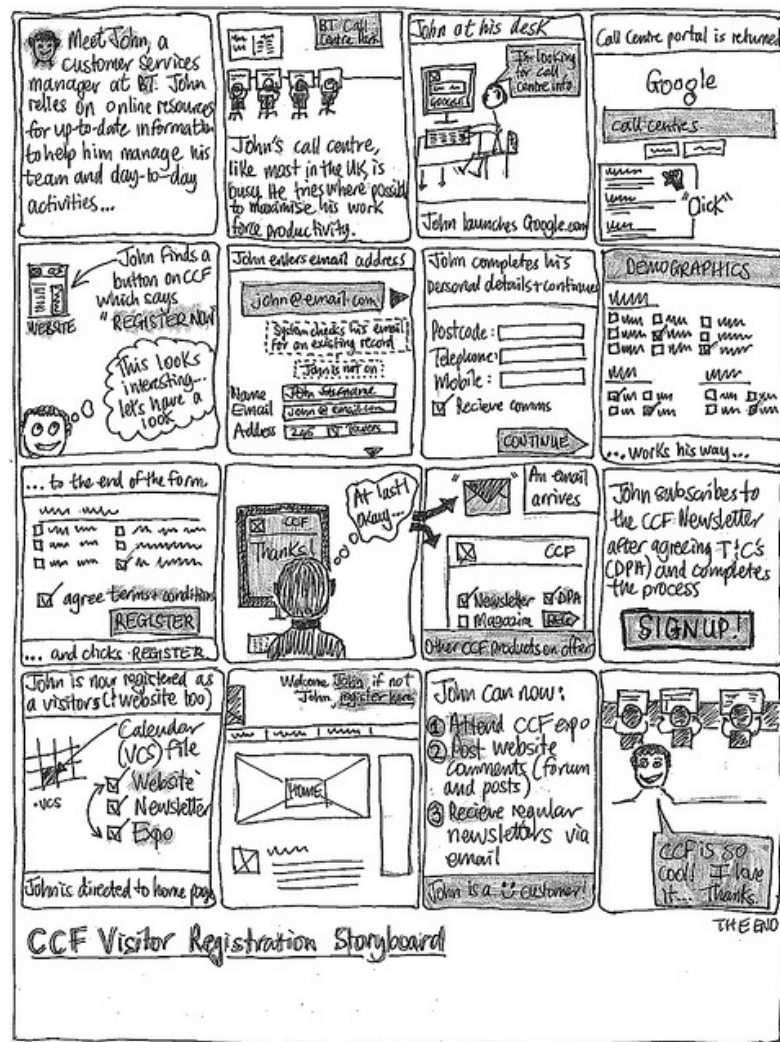 Meet John, a
customer services
manager at BT. John
relies on online resources
for up-to-date information
to help him manage his
team and day-to-day
activities...
BT Call
Centre Park
John's call centre,
like most in the UK, is
busy. He tries where possible
to maximise his work
force productivity.
John at his desk
I'm looking
for call
centre info
GOOGLE
John launches Google.com
Call Centre portal is returned
Google
call centres
"Click"
John finds a
button on CCF
which says
"REGISTER NOW"
WEBSITE
This looks
interesting...
let's have a
look
John enters email address
john@email.com
System checks his email
for an existing record
John is not on
Name John Surname
Email john@email.com
Address 245 BT Towers
John completes his
personal details + continues
Postcode:
Telephone:
Mobile:
Recieve comms
CONTINUE
DEMOGRAPHICS
...works his way...
... to the end of the form.
agree terms + conditions
REGISTER
... and clicks REGISTER
CCF
Thanks!
At last!
okay...
An email
arrives
CCF
Newsletter DPA
Magazine
Other CCF products on offer
John subscribes to
the CCF Newsletter
after agreeing T&C's
(DPA) and completes
the process
SIGNUP!
John is now registered as
a visitors (+ website too)
Calendar
(VCS) file
.vcs
Website
Newsletter
Expo
John is directed to home page
Welcome John if not
John register here
HOME
John can now:
1 Attend CCF expo
2 Post website
comments (forum
and posts)
3 Recieve regular
newsletters via
email
John is a customer!
CCF is so
cool! I love
it... Thanks.
THE END
CCF Visitor Registration Storyboard